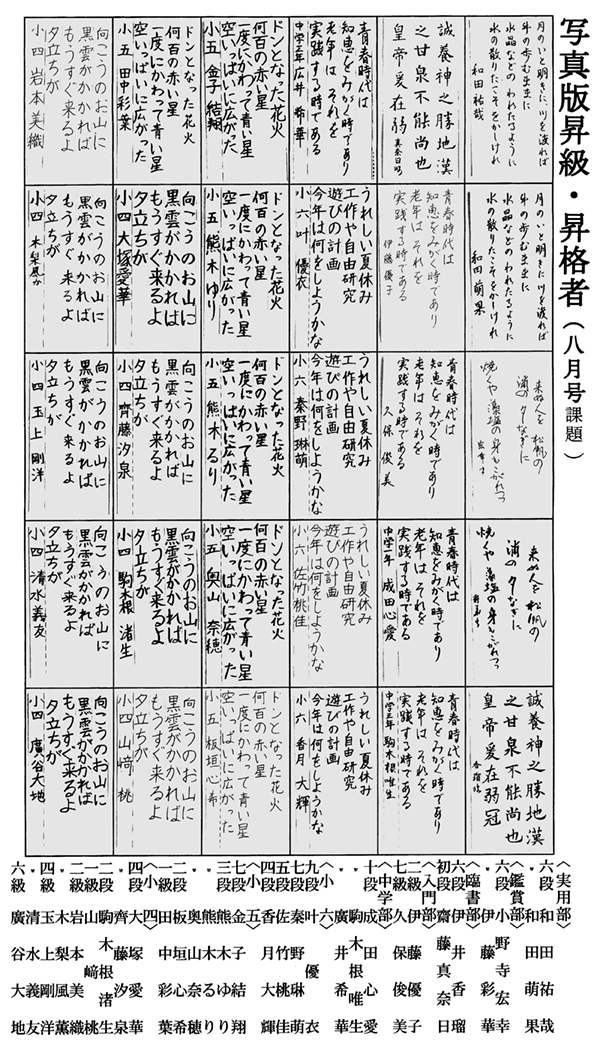 写真版昇級・昇格者（八月号課題）
月のいと明きに、川を渡れば
牛の歩むままに
水晶などの われたるように
水の散りたるこそをかしけれ
和田祐哉
月のいと明きに川を渡れば
牛の歩むままに
水晶などの われたるように
水の散りたるこそをかしけれ
和田萌果
来ぬ人を 松帆の
浦の夕なぎに
焼くや 藻塩の身もこがれつつ
来ぬ人を 松帆の
浦の夕なぎに
焼くや 藻塩の身もこがれつつ
誠養神之勝地漢
之甘泉不能尚也
皇帝爰在弱冠
誠養神之勝地漢
之甘泉不能尚也
皇帝爰在弱
真奈日
青春時代は
知恵をみがく時であり
老年は それを
実践する時である
伊藤優子
青春時代は
知恵をみがく時であり
老年は それを
実践する時である
久保俊美
青春時代は
知恵をみがく時であり
老年は それを
実践する時である
中学一年 成田心愛
青春時代は
知恵をみがく時であり
老年は それを
実践する時である
中学三年 駒木根唯生
青春時代は
知恵をみがく時であり
老年は それを
実践する時である
中学三年 広井希華
うれしい夏休み
工作や自由研究
遊びの計画
今年は何をしようかな
小六 叶 優衣
うれしい夏休み
工作や自由研究
遊びの計画
今年は何をしようかな
小六 秦野琳萌
うれしい夏休み
工作や自由研究
遊びの計画
今年は何をしようかな
小六 佐竹桃佳
うれしい夏休み
工作や自由研究
遊びの計画
今年は何をしようかな
小六 香月大輝
ドンとなった花火
何百の赤い星
一度にかわって青い星
空いっぱいに広がった
小五 金子結翔
ドンとなった花火
何百の赤い星
一度にかわって青い星
空いっぱいに広がった
小五 熊木ゆり
ドンとなった花火
何百の赤い星
一度にかわって青い星
空いっぱいに広がった
小五 熊木るり
ドンとなった花火
何百の赤い星
一度にかわって青い星
空いっぱいに広がった
小五 奥山奈穂
ドンとなった花火
何百の赤い星
一度にかわって青い星
空いっぱいに広がった
小五 板垣心希
ドンとなった花火
何百の赤い星
一度にかわって青い星
空いっぱいに広がった
小五 田中彩葉
向こうのお山に
黒雲がかかれば
もうすぐ来るよ
夕立ちが
小四 大塚愛華
向こうのお山に
黒雲がかかれば
もうすぐ来るよ
夕立ちが
小四 齊藤汐泉
向こうのお山に
黒雲がかかれば
もうすぐ来るよ
夕立ちが
小四 駒木根渚生
向こうのお山に
黒雲がかかれば
もうすぐ来るよ
夕立ちが
小四 山﨑桃
向こうのお山に
黒雲がかかれば
もうすぐ来るよ
夕立ちが
小四 岩本美織
向こうのお山に
黒雲がかかれば
もうすぐ来るよ
夕立ちが
小四 木梨風か
向こうのお山に
黒雲がかかれば
もうすぐ来るよ
夕立ちが
小四 玉上剛洋
向こうのお山に
黒雲がかかれば
もうすぐ来るよ
夕立ちが
小四 清水義友
向こうのお山に
黒雲がかかれば
もうすぐ来るよ
夕立ちが
小四 廣谷大地
〈実用部〉
六段 和田祐哉
〃 和田萌果
〈鑑賞部〉
六段 小野寺宏幸
〃 伊藤彩華
〈臨書部〉
六段 伊井香瑠
初段 齋藤真奈日
〈入門部〉
七級 伊藤優子
二級 久保俊美
〈中学部〉
十段 成田心愛
〃 駒木根唯生
〃 廣井希華
〈小六〉
九段 叶優衣
七段 秦野琳萌
五段 佐竹桃佳
四段 香月大輝
〈小五〉
七段 金子結翔
三段 熊木ゆり
〃 熊木るり
〃 奥山奈穂
二段 板垣心希
一級 田中彩葉
〈小四〉
四段 大塚愛華
〃 齊藤汐泉
二段 駒木根渚生
一級 山﨑桃
二級 岩本美織
〃 木梨風薫
四級 玉上剛洋
〃 清水義友
六級 廣谷大地